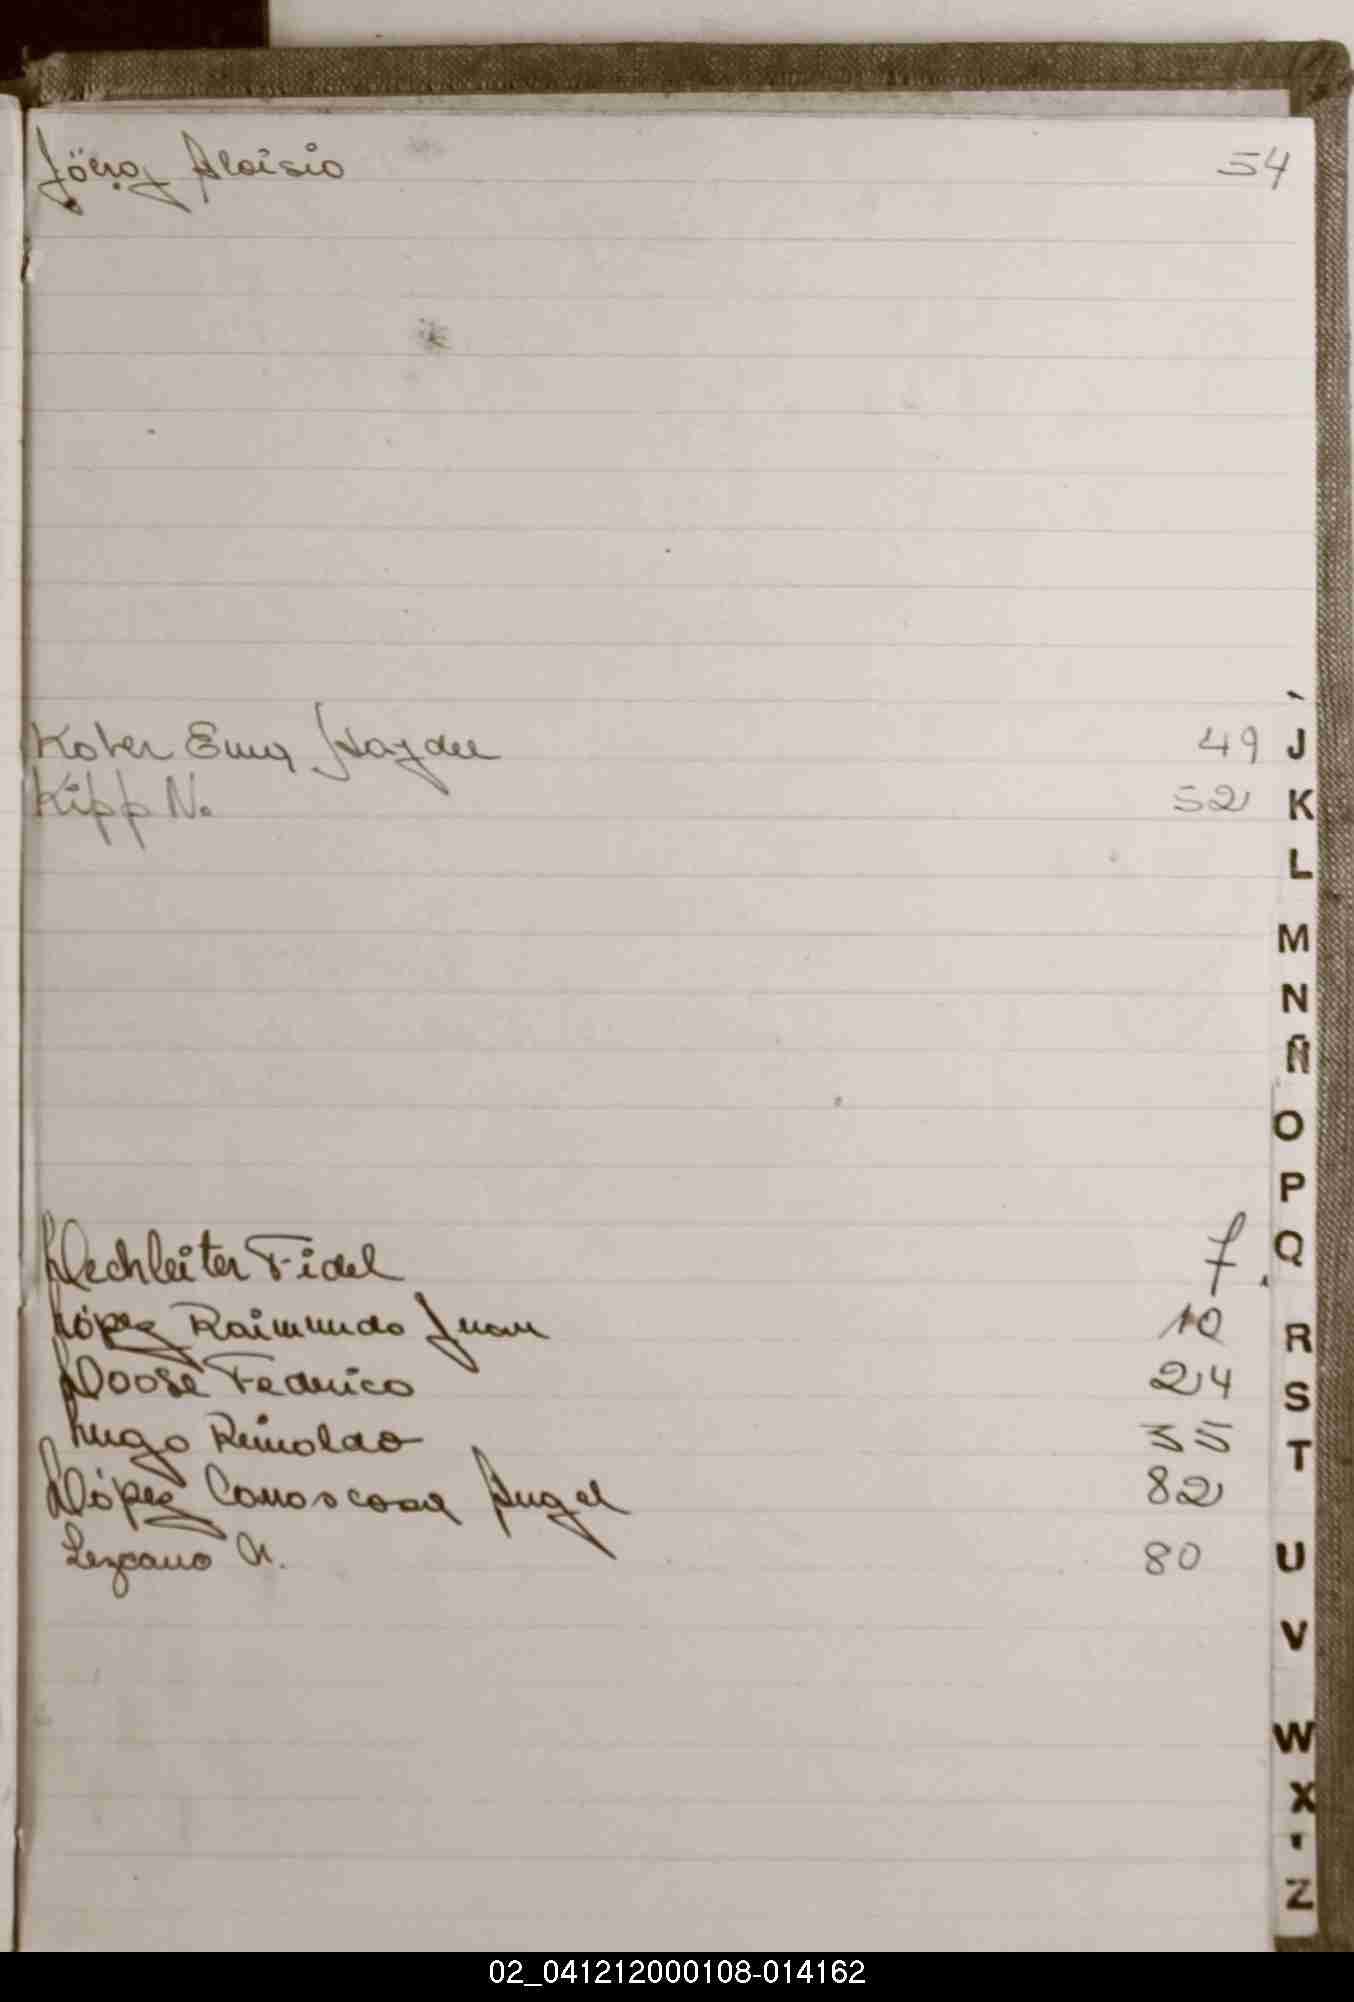 Jörg Aloisio 54
Kober Ema Haydee 49 J
Kipp N. 52 K
L
M
N
Ñ
O
P
Lechleiter Fidel 7. Q
López Raimundo Juan 10 R
Loose Federico 24 S
Lugo Reinoldo 35 T
López Angel 82
Lezcano N. 80 U
V
W
X
Z
02_041212000108-014162